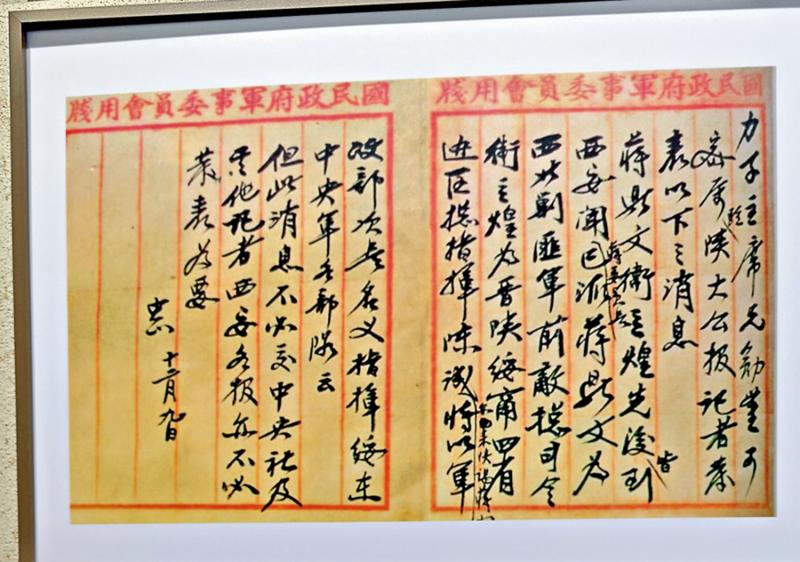 國民政府軍事委員會用牋
力子主席兄勛鑒可
密屬駐陝大公報記者發
表以下之消息
蔣鼎文衛立煌先後皆到
西安聞蔣委員長已派蔣鼎文為
西北剿匪軍前敵總司令
衛立煌為晉陝綏甯四省
邊區總指揮陳誠將以軍
國民政府軍事委員會用牋
政部次長名義指揮綏東
中央軍各部隊云
但此消息不必交中央社及
其他記者西安各報亦不必
發表為要
十二月九日